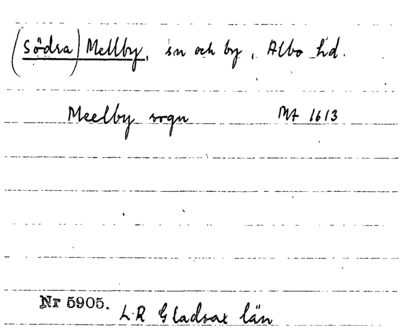 (Södra) Mellby, sn och by, Albo hd.
Meelby sogn MA 1613
Nr 5905. LR Gladsax län